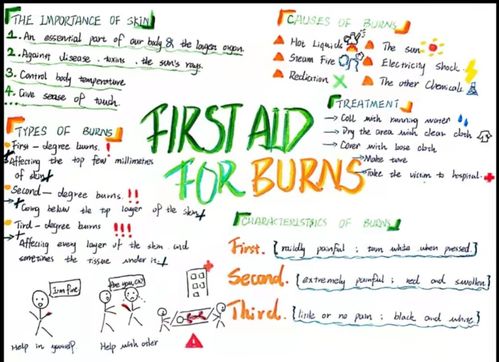 THE IMPORTANCE OF SKIN
1. An essential part of our body & the largest organ.
2. Against disease. toxins. the sun's rays.
3. Control body temperature
4. Give sense of touch.
...
CAUSES OF BURNS
Hot Liquids
The sun
Steam Fire
Electricity shock
Radiation
The other Chemicals
TREATMENT
→ Cold with running water
→ Dry the area with clean cloth
→ Cover with loose cloth
→ Make sure
→ Take the victim to hospital
FIRST AID
FOR BURNS
TYPES OF BURNS
First - degree burns. !
Affecting the top few millimetres
of skin
Second - degree burns. !!
Going below the top layer of the skin
Tird - degree burns !!!
Affecting every layer of the skin and
sometimes the tissue under it
CHARACTERISTICS OF BURNS
First. { mildly painful ; turn white when pressed }
Second. { extremely painful ; red and swollen }
Third. { little or no pain ; black and white }
I am fine
Are you ok?
Help in yourself
Help with other